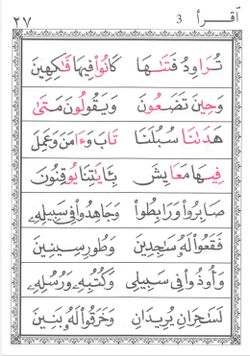 اقرأ 3 ٢٧
تُرَاوِدُ فَتَىٰهَا كَانُوا۟ فِيهَا فَٰكِهِينَ
وَحِينَ تَضَعُونَ وَيَقُولُونَ مَتَىٰ
هَدَىٰنَا سُبُلَنَا تَابَ وَءَامَنَ وَعَمِلَ
فِيهَا مَعَٰيِشَ بِـَٔايَٰتِنَا يُوقِنُونَ
صَابِرُوا۟ وَرَابِطُوا۟ وَجَاهِدُوا۟ فِى سَبِيلِهِۦ
فَقَعُوا۟ لَهُۥ سَٰجِدِينَ وَطُورِ سِينِينَ
وَأُوذُوا۟ فِى سَبِيلِى وَكُتُبِهِۦ وَرُسُلِهِۦ
لَسَٰحِرَٰنِ يُرِيدَانِ وَخَرَقُوا۟ لَهُۥ بَنِينَ